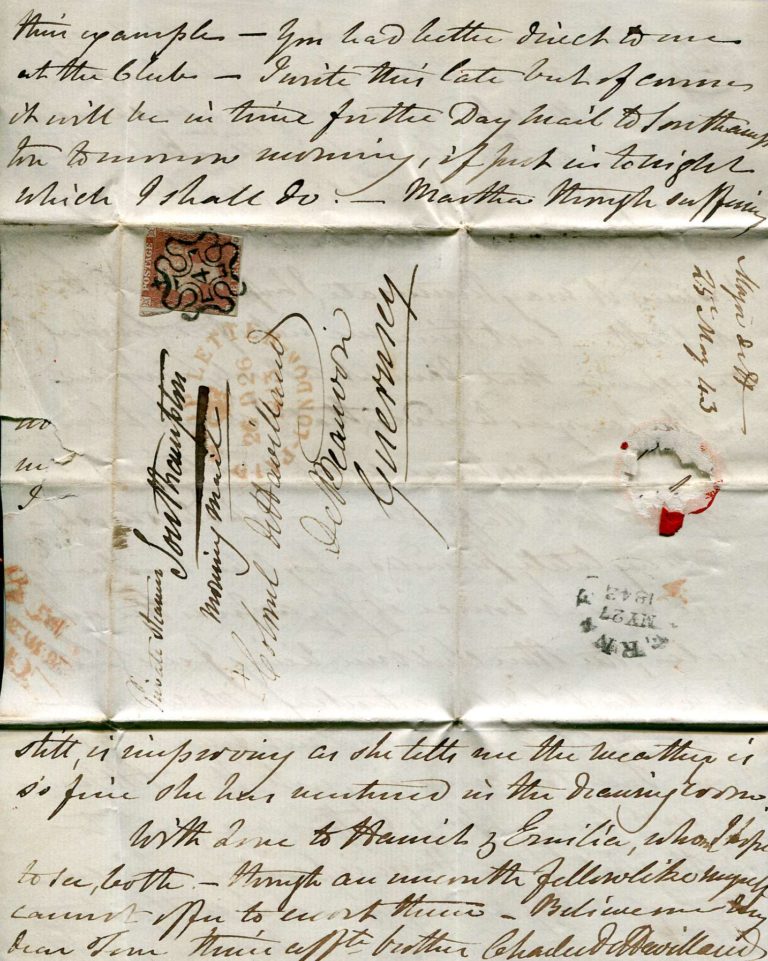 their example — You had better direct to me
at the Club — I write this late but of course
it will be in time for the Day Mail to Southamp
ton tomorrow morning, if put in tonight
which I shall do. — Martha though suffering
POSTAGE
Private Steamer
Southampton
Morning Mail
Colonel De Havilland
De Beauvoir
Guernsey
LONDON
25 May 43
MY 27
1843
still, is improving as she tells me the weather is
so fine she has ventured in the drawing room.
With love to Harriet & Emilia, whom I hope
to see, both — though an uncouth fellow like myself
cannot offer to escort them — Believe me my
dear Tom thine afft brother Charles De Havilland